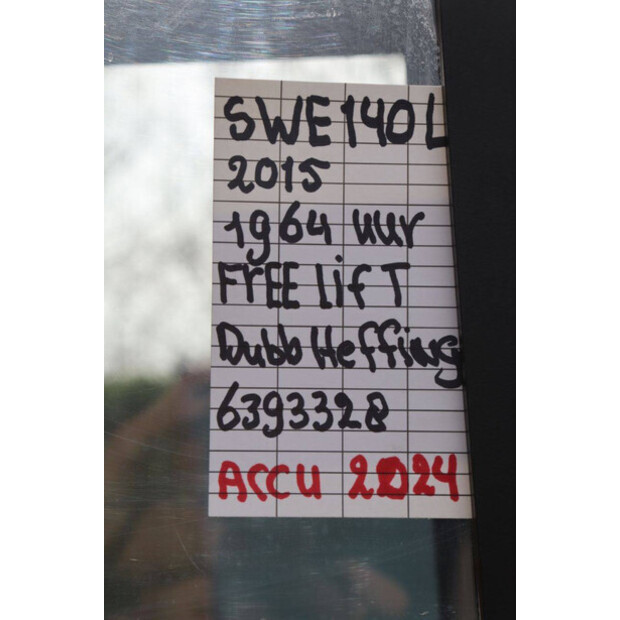 SWE140L
2015
1964 uur
FrEE lifT
Dubb Heffing
6393328
Accu 2024